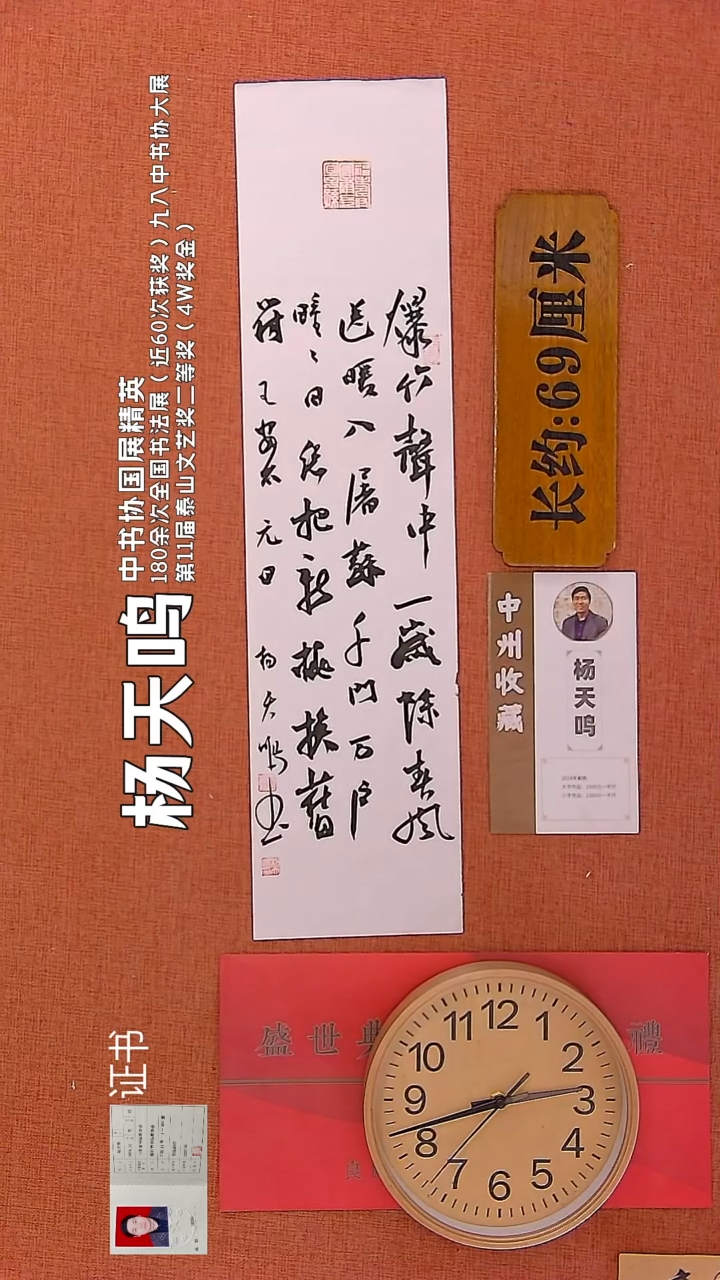 杨天鸣
中书协国展精英
180余次全国书法展(近60次获奖)九八中书协大展
第11届泰山文艺奖二等奖(4W奖金)
爆竹聲中一歲除春風
送暖入屠蘇千門万户
曈〻日总把新桃換舊
符 王安石 元日 杨天鸣书
长约:69厘米
中州收藏
杨天鸣
盛世典禮
证书
12
1
2
3
4
5
6
7
8
9
10
11